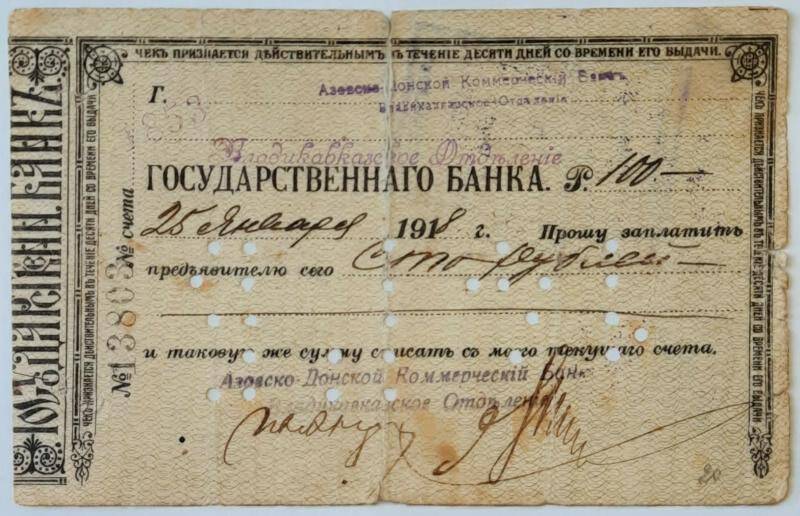 ЧЕКЪ ПРИЗНАЕТСЯ ДѢЙСТВИТЕЛЬНЫМЪ ВЪ ТЕЧЕНІЕ ДЕСЯТИ ДНЕЙ СО ВРЕМЕНИ ЕГО ВЫДАЧИ.
Г.
Азовско-Донской Коммерческій Банкъ
Владикавказское Отдѣленіе
253
Владикавказское Отдѣленіе
ГОСУДАРСТВЕННАГО БАНКА. Р. 100 —
25 Января 1918 г. Прошу заплатить
предъявителю сего Сто рублей —
и таковую же сумму списать съ моего текущаго счета.
Азовско-Донской Коммерческій Банк
Владикавказское Отдѣленіе
20
№ счета
№ 13803
ЧЕКЪ ПРИЗНАЕТСЯ ДѢЙСТВИТЕЛЬНЫМЪ ВЪ ТЕЧЕНІЕ ДЕСЯТИ ДНЕЙ СО ВРЕМЕНИ ЕГО ВЫДАЧИ
ЧЕКЪ ПРИЗНАЕТСЯ ДѢЙСТВИТЕЛЬНЫМЪ ВЪ ТЕЧЕНІЕ ДЕСЯТИ ДНЕЙ СО ВРЕМЕНИ ЕГО ВЫДАЧИ
БАНКЪ